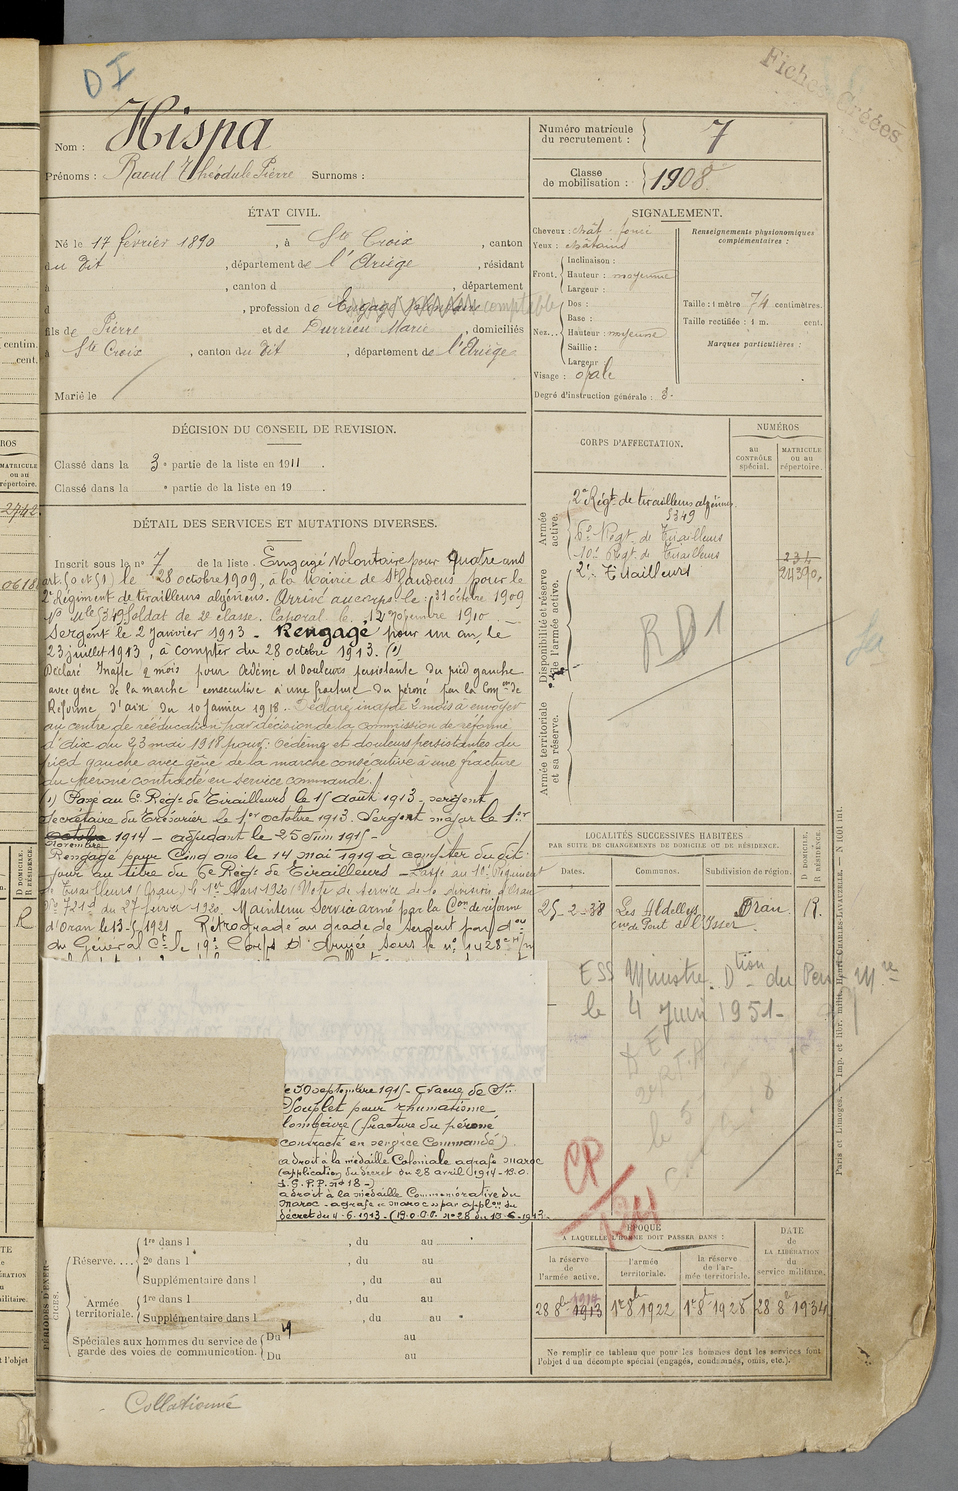 D I
Fiches Créées
Nom : Hispa
Prénoms : Raoul Théodule Pierre Surnoms :
Numéro matricule du recrutement : 7
Classe de mobilisation : 1908
ÉTAT CIVIL.
Né le 17 février 1890, à Ste Croix, canton
du dit, département de l'Ariège, résidant
à , canton d , département
d , profession de Engagé volontaire comptable
fils de Pierre et de Durrieu Marie, domiciliés
à Ste Croix, canton du dit, département de l'Ariège
Marié le
DÉCISION DU CONSEIL DE REVISION.
Classé dans la 3e partie de la liste en 1911.
Classé dans la e partie de la liste en 19 .
SIGNALEMENT.
Cheveux : chât. foncé
Yeux : châtains
Front. Inclinaison :
Hauteur : moyenne
Largeur :
Nez... Dos :
Base :
Hauteur : moyenne
Saillie :
Largeur
Visage : ovale
Degré d'instruction générale : 3.
Renseignements physionomiques complémentaires :
Taille : 1 mètre 74 centimètres.
Taille rectifiée : 1 m. cent.
Marques particulières :
DÉTAIL DES SERVICES ET MUTATIONS DIVERSES.
Inscrit sous le no 7 de la liste. Engagé Volontaire pour quatre ans
art. 50 et 51) le 28 octobre 1909, à la Mairie de St Gaudens pour le
2e Régiment de tirailleurs algériens. Arrivé au corps le 31 octobre 1909
No Mle 5349 Soldat de 2e classe. Caporal le 12 novembre 1910
Sergent le 2 Janvier 1913 - Rengagé pour un an, le
23 juillet 1913, à compter du 28 octobre 1913. (1)
Déclaré Inapte 2 mois pour Œdème et douleurs persistante du pied gauche
avec gêne de la marche consécutive à une fracture du péroné par la Comon de
Réforme d'Aix du 10 Janvier 1918. Déclaré inapte 2 mois à envoyer
au centre de rééducation par décision de la commission de réforme
d'Aix du 23 mai 1918 pour : Oedème et douleurs persistantes du
pied gauche avec gêne de la marche consécutive à une fracture
du péroné contracté en service commandé.
(1) Passé au 6e Régt de Tirailleurs le 15 Août 1913 - sergent
secrétaire du Trésorier le 1er octobre 1913. Sergent major le 1er
Octobre Novembre 1914 - adjudant le 25 Juin 1915 -
Rengagé pour Cinq ans le 14 mai 1919 à compter du dit
jour au titre du 6e Régt de Tirailleurs - Passé au 10e Régiment
de Tirailleurs (Oran) le 1er Mars 1920 (Note de service de la division d'Oran
No 721 du 27 février 1920. Maintenu Service armé par la Con de réforme
d'Oran le 13-5-1921 - Rétrogradé au grade de Sergent par don
du Général Ct le 19e Corps d'Armée sous le no 1428
le 30 septembre 1915 - Évacué de St
Souplet pour rhumatisme
lombaire (fracture du péroné
contracté en service Commandé)
a droit à la médaille Coloniale agrafe Maroc
(application du décret du 28 avril 1914 - B.O.
E.S. P.P. no 18 -)
a droit à la médaille Commémorative du
Maroc - agrafe "Maroc" par applon du
décret du 4-6-1913 - (B.O. P.P. no 28 du 13-6-1913.
CORPS D'AFFECTATION.
NUMÉROS
au CONTRÔLE spécial.
MATRICULE ou au répertoire.
Armée active.
2e Régt de tirailleurs algériens 5349
6e Régt de Tirailleurs
10e Régt de Tirailleurs
234
Disponibilité et réserve de l'armée active.
2e Tirailleurs
24390.
RD1
Armée territoriale et sa réserve.
LOCALITÉS SUCCESSIVES HABITÉES
PAR SUITE DE CHANGEMENTS DE DOMICILE OU DE RÉSIDENCE.
Dates. Communes. Subdivision de région.
D DOMICILE. R RÉSIDENCE.
25-2-38 Les Abdellys Oran. R.
cne de Pont de l'Isser
ESS Ministre. Dtion du Pers Mre
le 4 Juin 1951 -
CP
ÉPOQUE
A LAQUELLE L'HOMME DOIT PASSER DANS :
la réserve de l'armée active.
l'armée territoriale.
la réserve de l'armée territoriale.
DATE DE LA LIBÉRATION du service militaire.
28 8bre 1913
1er 8bre 1922
1er 8bre 1928
28 8bre 1934
Ne remplir ce tableau que pour les hommes dont les services font
l'objet d'un décompte spécial (engagés, condamnés, omis, etc.).
PÉRIODES D'EXERCICES.
Réserve.... 1re dans l , du au
2e dans l , du au
Supplémentaire dans l , du au
Armée territoriale. 1re dans l , du au
Supplémentaire dans l , du au
Spéciales aux hommes du service de garde des voies de communication. Du au
Du au
Collationné
Paris et Limoges. — Imp. et libr. milit. Henri CHARLES-LAVAUZELLE.
centim.
cent.
MATRICULE ou au répertoire.
2742
0618
D DOMICILE. R RÉSIDENCE.
R
militaire.
t l'objet